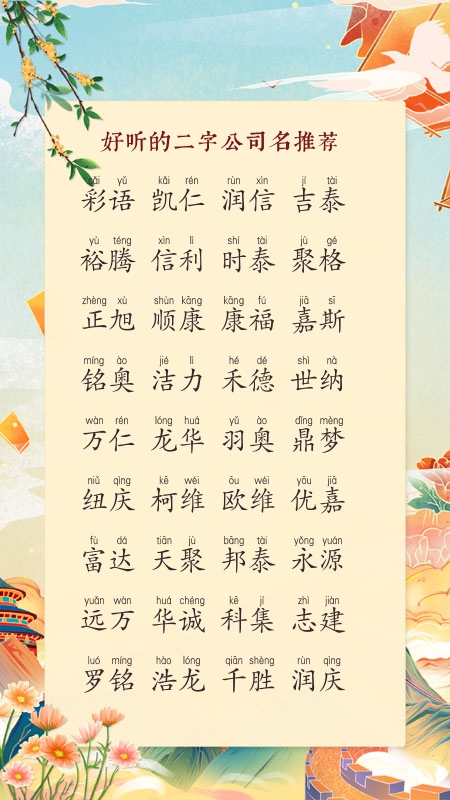 好听的二字公司名推荐
cǎi yǔ kǎi rén rùn xìn jí tài
彩语 凯仁 润信 吉泰
yù téng xìn lì shí tài jù gé
裕腾 信利 时泰 聚格
zhèng xù shùn kāng kāng fú jiā sī
正旭 顺康 康福 嘉斯
míng ào jié lì hé dé shì nà
铭奥 洁力 禾德 世纳
wàn rén lóng huá yǔ ào dǐng mèng
万仁 龙华 羽奥 鼎梦
niǔ qìng kē wéi ōu wéi yōu jiā
纽庆 柯维 欧维 优嘉
fù dá tiān jù bāng tài yǒng yuán
富达 天聚 邦泰 永源
yuǎn wàn huá chéng kē jí zhì jiàn
远万 华诚 科集 志建
luó míng hào lóng qiān shèng rùn qìng
罗铭 浩龙 千胜 润庆